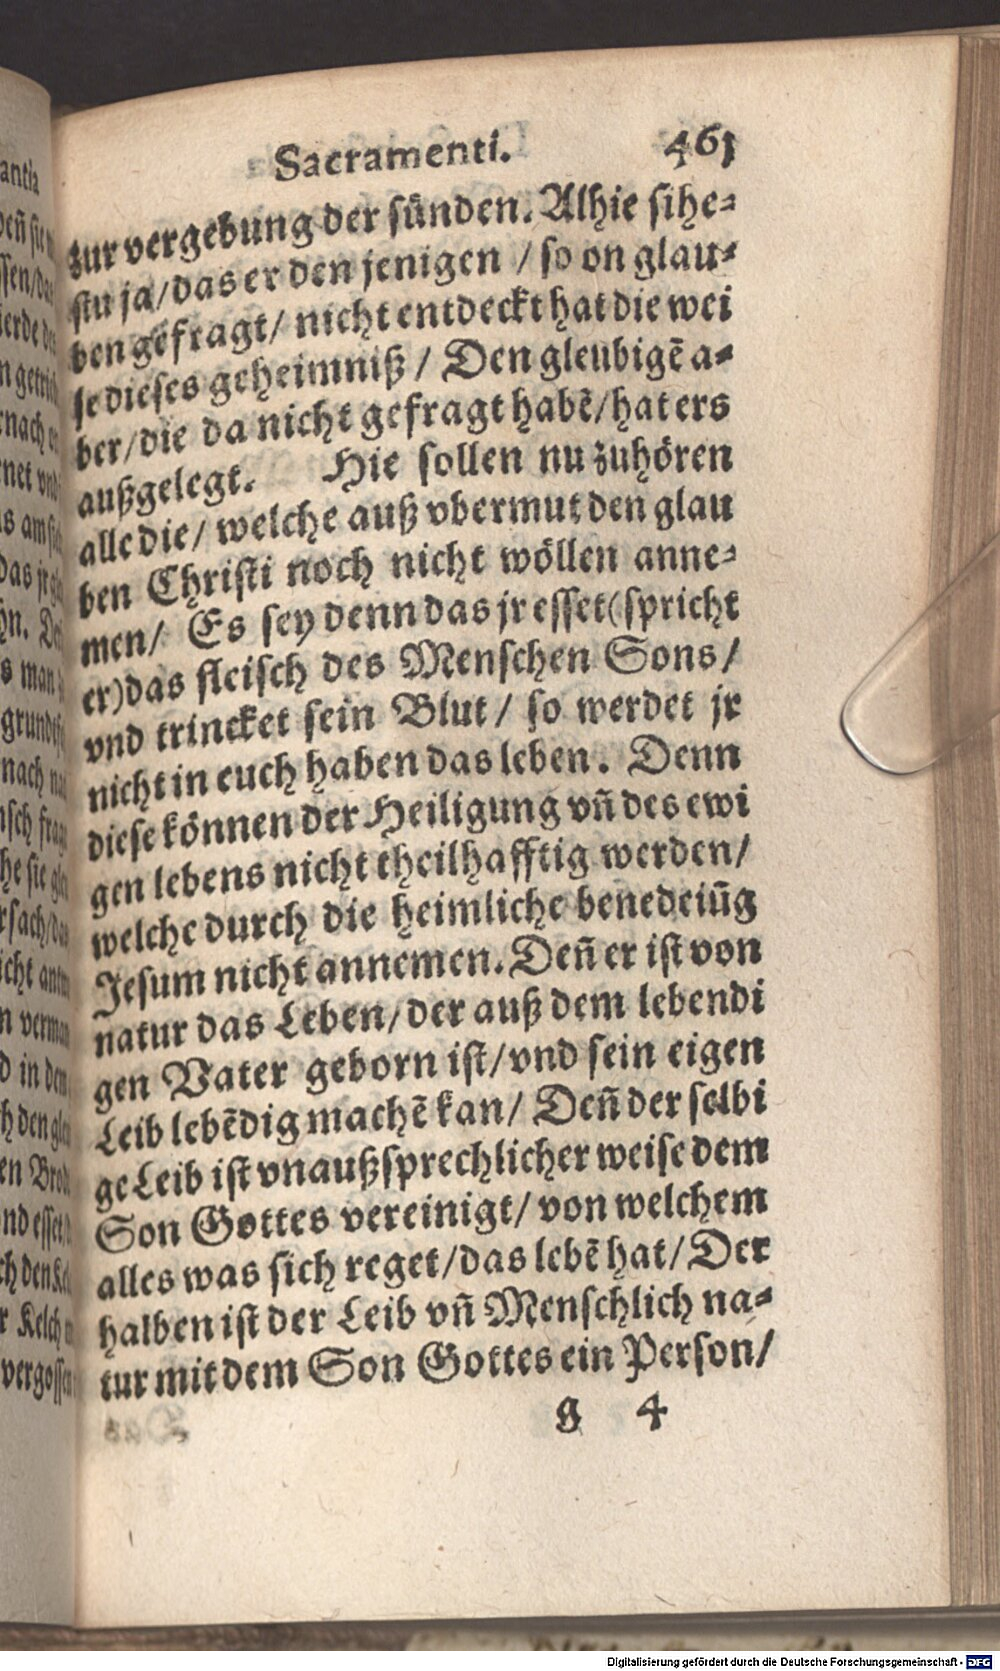 Sacramenti. 461
zur vergebung der sünden. Alhie sihe-
stu ja/das er den jenigen / so on glau-
ben gefragt/ nicht entdeckt hat die wei
se dieses geheimniß / Den gleubigē a-
ber/die da nicht gefragt habē/hat ers
außgelegt. Hie sollen nu zuhören
alle die/ welche auß vbermut den glau
ben Christi noch nicht wöllen anne-
men/ Es sey denn das jr esset(spricht
er)das fleisch des Menschen Sons/
vnd trincket sein Blut/ so werdet jr
nicht in euch haben das leben. Denn
diese können der Heiligung vñ des ewi
gen lebens nicht theilhafftig werden/
welche durch die heimliche benedeiũg
Jesum nicht annemen. Deñ er ist von
natur das Leben/der auß dem lebendi
gen Vater geborn ist/vnd sein eigen
Leib lebēdig machē kan/ Deñ der selbi
ge Leib ist vnaußsprechlicher weise dem
Son Gottes vereinigt/ von welchem
alles was sich reget/das lebē hat/ Der
halben ist der Leib vñ Menschlich na-
tur mit dem Son Gottes ein Person/
g 4
Digitalisierung gefördert durch die Deutsche Forschungsgemeinschaft - DFG